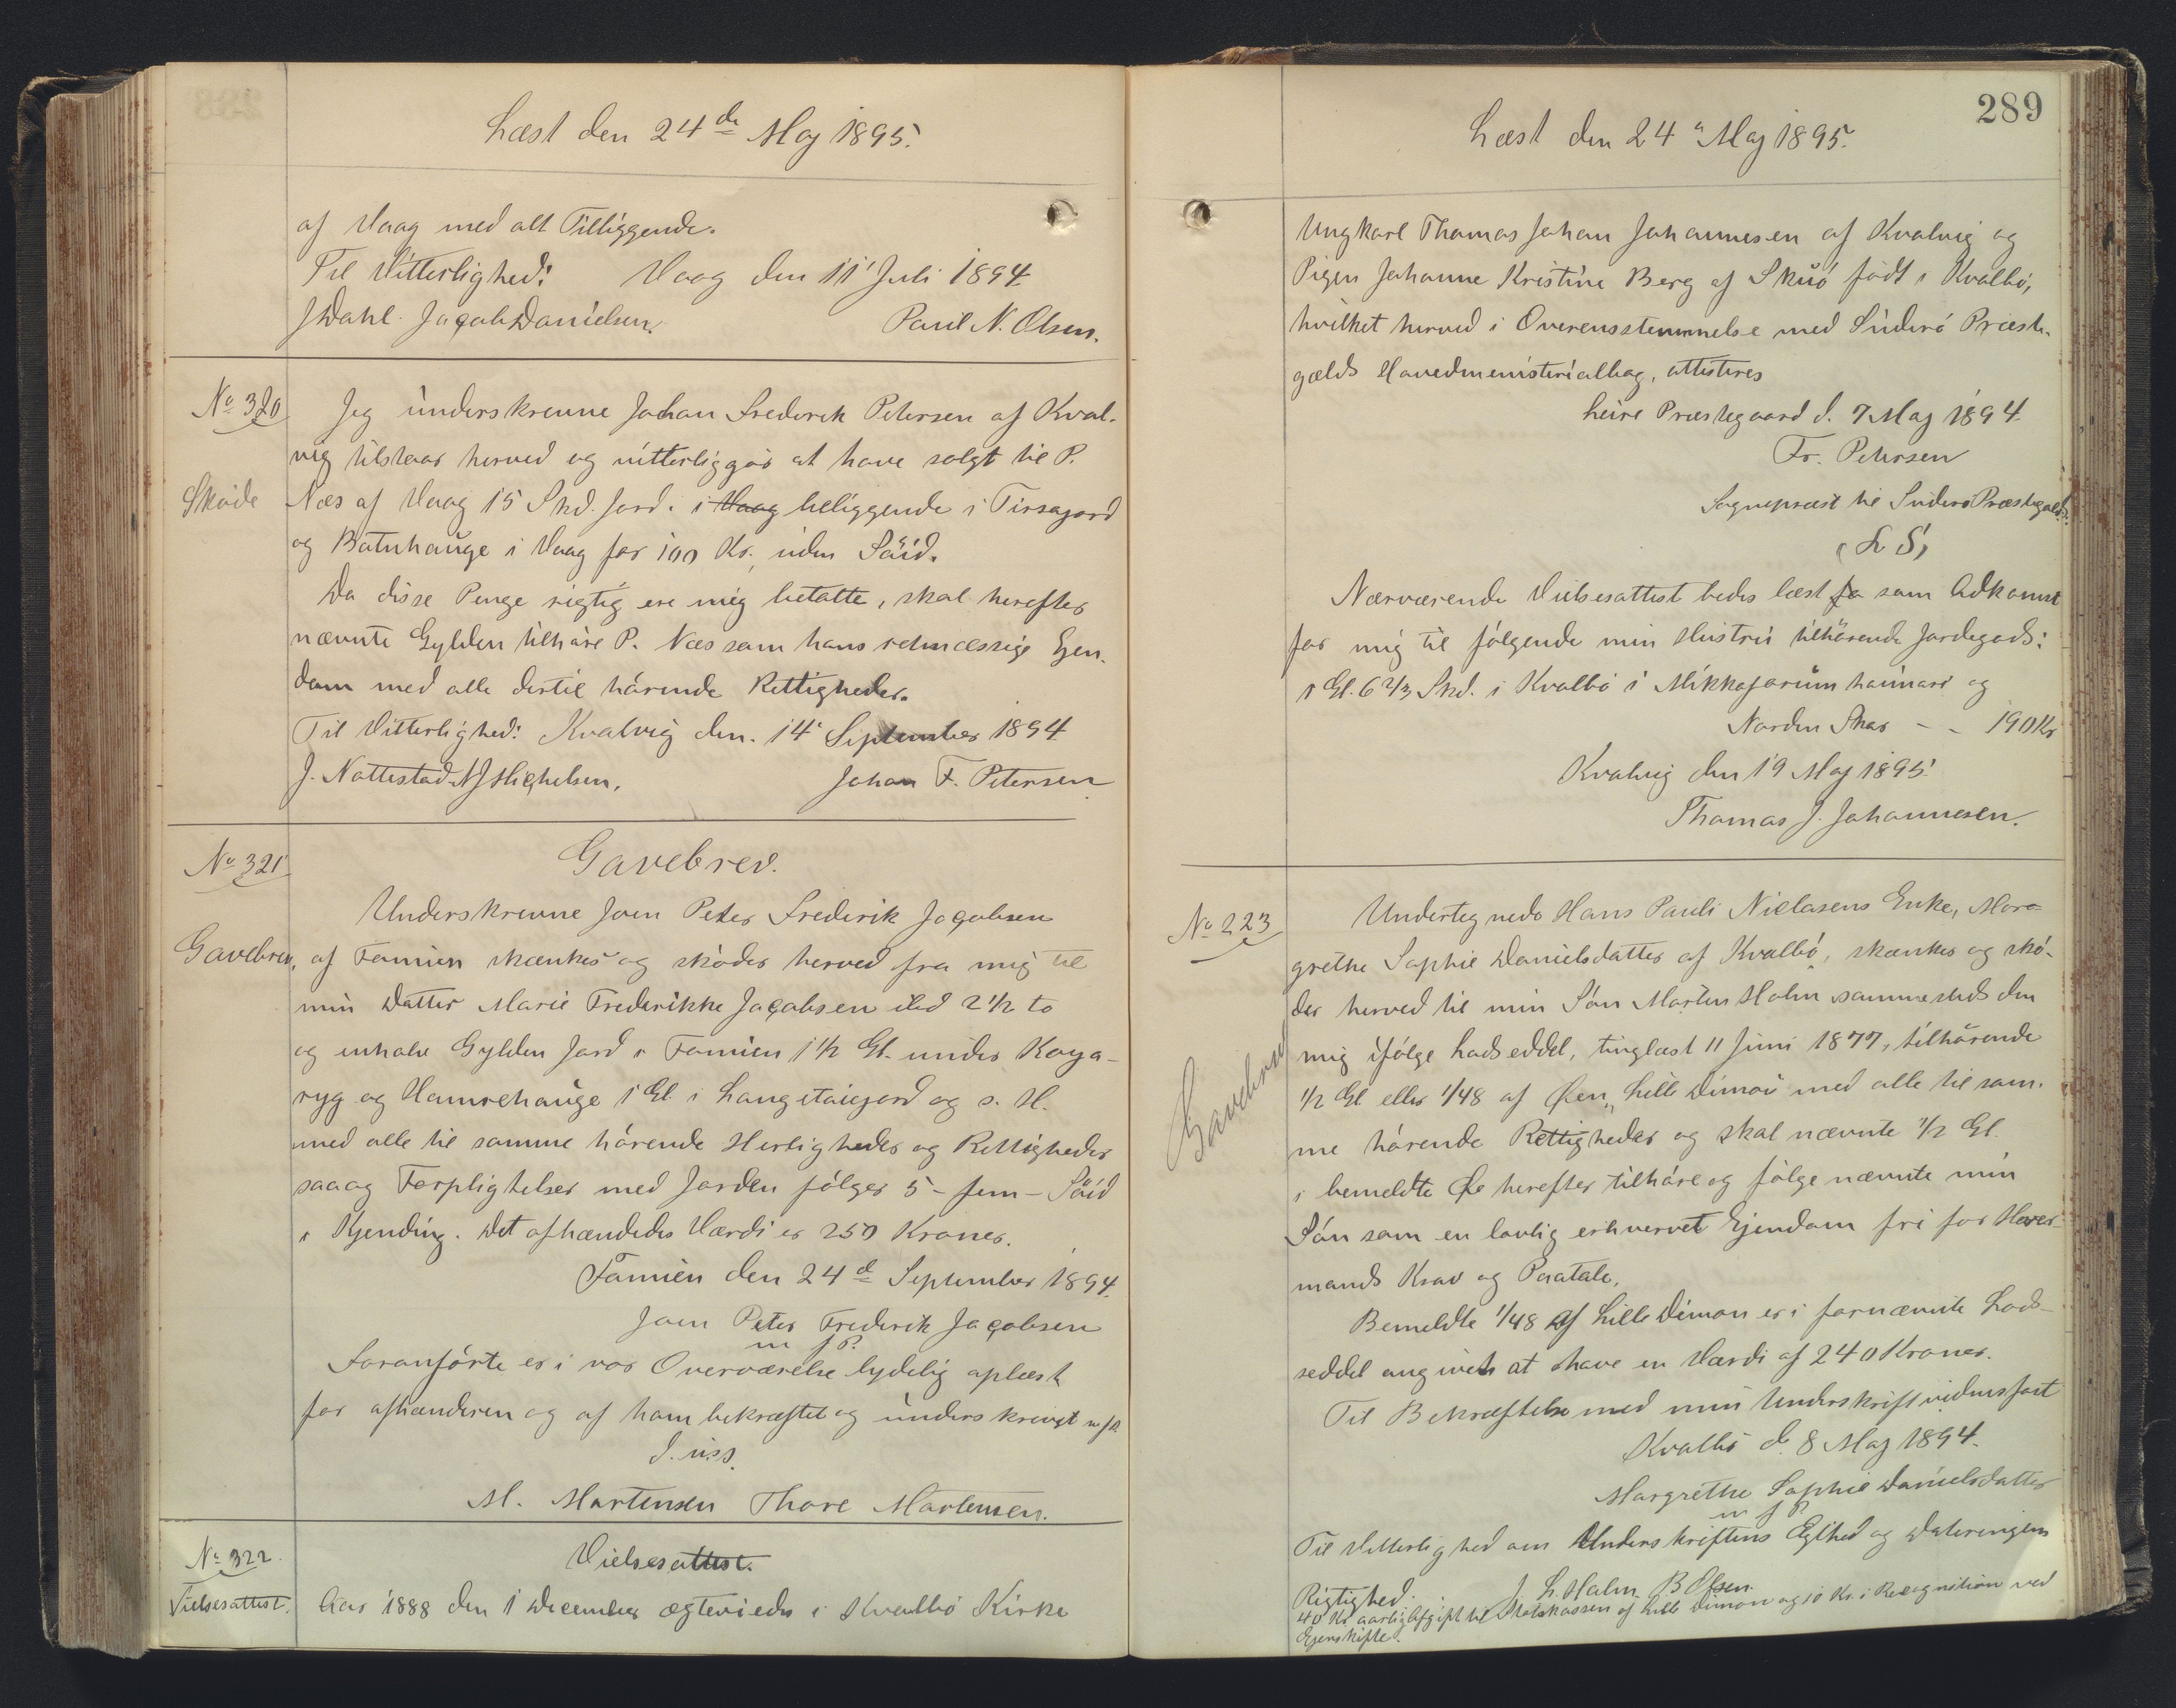 Læst den 24de Maj 1895.
af Vaag med alt Tilliggende.
Til Vitterlighed: Vaag den 11' Juli 1894
J Dahl. Jacob Danielsen. Paul N. Olsen.
No 320
Skøde
Jeg underskrevne Johan Frederik Petersen af Kval-
vig tilstaar herved og vitterliggør at have solgt til P.
Næs af Vaag 15 Skd. Jord. i Vaag beliggende i
og Batnhauge i Vaag for 100 Kr. uden Söid.
Da disse Penge rigtig ere mig betalte, skal herefter
nævnte Gylden tilhøre P. Næs som hans retmæssige Ejen-
dom med alle dertil hørende Rettigheder.
Til Vitterlighed: Kvalvig den 14' September 1894
J. Nattestad. N J Michelsen. Johan F. Petersen
No 321
Gavebrev.
Gavebrev.
Underskrevne Joen Peter Frederik Jacobsen
af Famien skænker og skøder herved fra mig til
min Datter Marie Frederikke Jacobsen ibd 2 1/2 to
og enhalv Gylden Jord i Famien 1 1/2 Gl. under
ryg og Hamrehauge 1 Gl. i og s. H.
med alle til samme hørende Herligheder og Rettigheder
saaog Forpligtelser med Jorden følger 5 - fem - Söid
i Kjending. Det afhændedes Værdi er 250 Kroner.
Famien den 24d September 1894.
Joen Peter Frederik Jacobsen
m f P.
Foranførte er i vor Overværelse lydelig oplæst
for afhænderen og af ham bekræftet og underskrevet m f P.
D. u. s.
M. Mortensen Thore Mortensen.
No 322.
Vielsesattest.
Vielsesattest.
Aar 1888 den 1 December ægteviedes i Kvalbø Kirke
289
Læst den 24' Maj 1895.
Ungkarl Thomas Johan Johannesen af Kvalvig og
Pigen Johanne Kristine Berg af Skuø født i Kvalbø,
hvilket herved i Overensstemmelse med Suderø Præste-
gælds Hovedministerialbog, attesteres
Præstegaard d. 7 Maj 1894
Fr. Petersen
Sognepræst til Suderø Præstegæld.
(L S)
Nærværende Vielsesattest bedes læst fo som Adkomst
for mig til følgende min Hustru tilhørende Jordegods:
1 Gl. 6 2/3 Skd. i Kvalbø i og
Norden Skar - - 190 Kr
Kvalvig den 19 Maj 1895.
Thomas J. Johannesen.
No 223
Gavebrev
Undertegnede Hans Pauli Nielasens Enke, Mar-
grethe Sophie Danielsdatter af Kvalbø, skænker og skø-
der herved til min Søn Morten Holm sammesteds den
mig ifølge Lodseddel, tinglæst 11 Juni 1877, tilhørende
1/2 Gl. eller 1/48 af Øen, Lille Dimon med alle til sam-
me hørende Rettigheder og skal nævnte 1/2 Gl.
i bemeldte Ø herefter tilhøre og følge nævnte min
Søn som en lovlig erhvervet Ejendom fri for Hver-
mands Krav og Paatale.
Bemeldte 1/48 af Lille Dimon er i fornævnte Lods-
seddel angivet at have en Værdi af 240 Kroner.
Til Bekræftelse med min Underskrift vidnesfast
Kvalbø d. 8 Maj 1894.
Margrethe Sophie Danielsdatter
m f P.
Til Vitterlighed om Underskriftens Ægthed og Dateringens
Rigtighed: J. L. Holm B Olsen.
40 Kr. aarlig Afgift til Statskassen af Lille Dimon og 10 Kr. i Recognition ved
Ejerskifte.